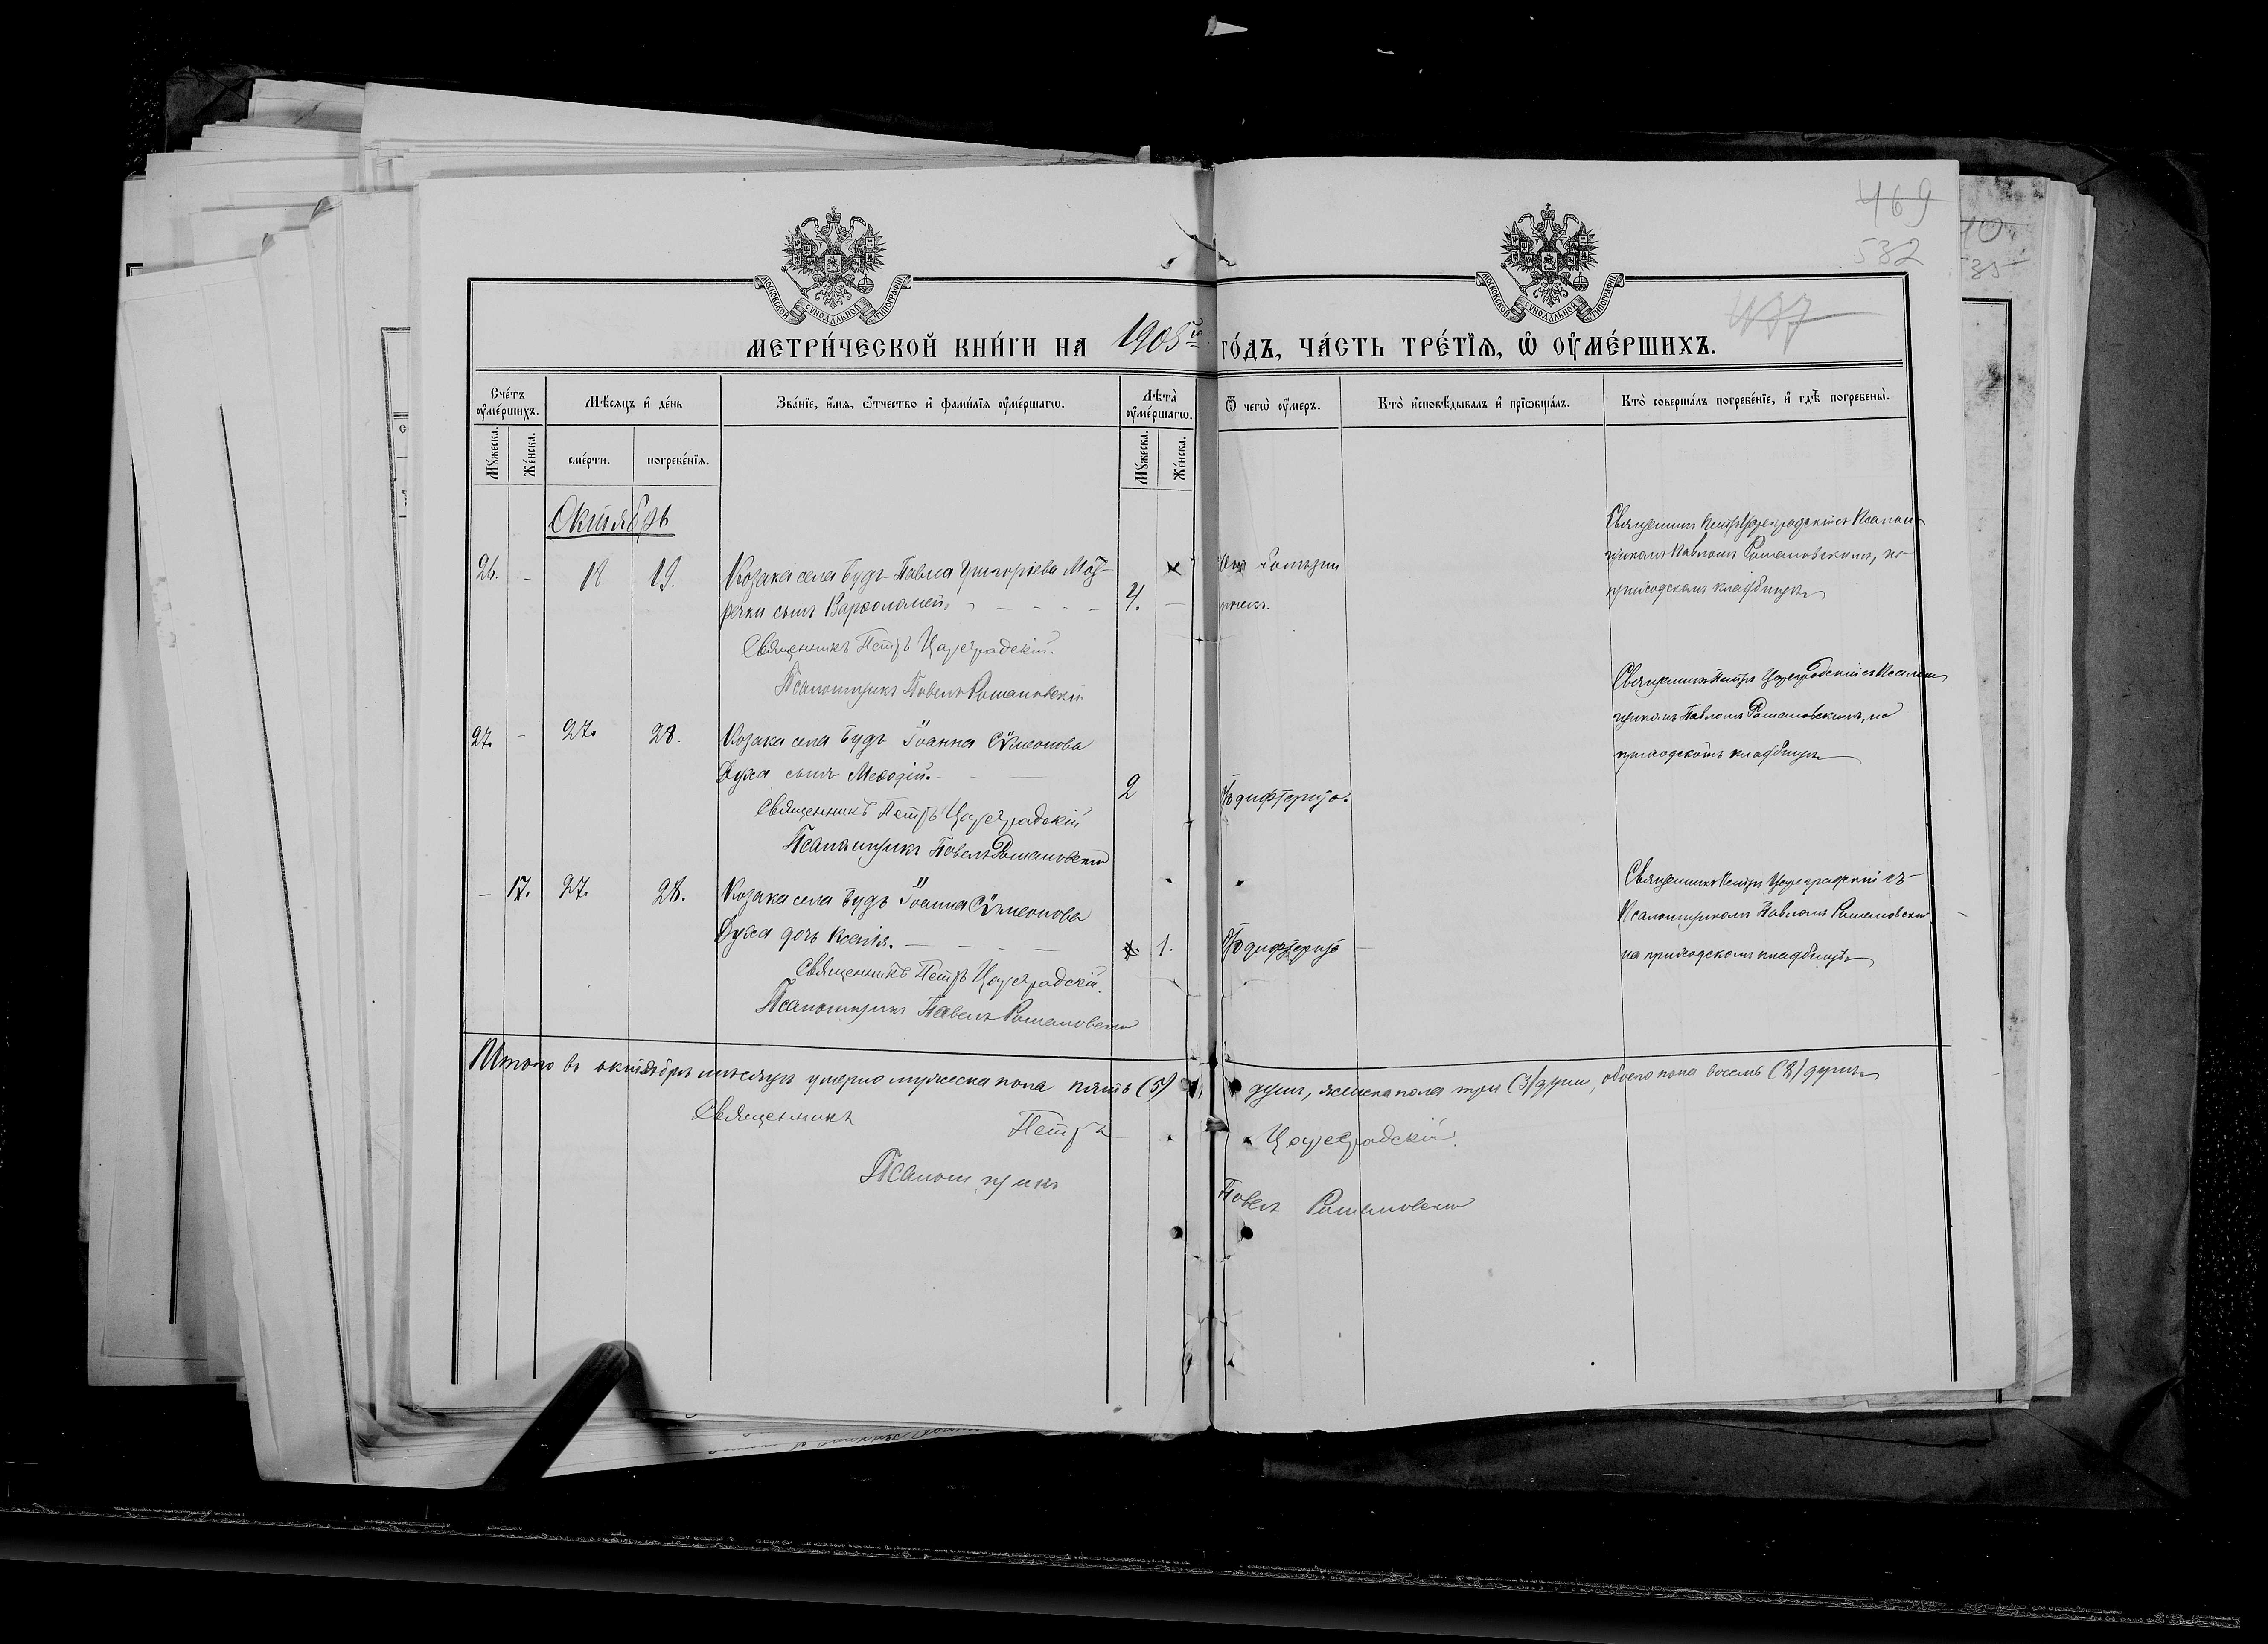 469
532
МОСКОВСКОЙ СУНОДАЛЬНОЙ ТИПОГРАФІИ
МОСКОВСКОЙ СУНОДАЛЬНОЙ ТИПОГРАФІИ
МЕТРИ́ЧЕСКОЙ КНИ́ГИ НА 1905 ГО́ДЪ, ЧА́СТЬ ТРЕ́ТЇѦ, Ѡ҆ ОУ҆МЕ́РШИХЪ.
Сче́тъ оу҆ме́ршихъ.
Мѣ́сяцъ и҆ де́нь
Зва́нїе, и҆́мя, ѻ҆́тчество и҆ фами́лїя оу҆ме́ршагѡ.
Лѣ́та оу҆ме́ршагѡ.
Ѿ чегѡ̀ оу҆́меръ.
Кто̀ и҆сповѣ́дывалъ и҆ прїѡбща́лъ.
Кто̀ соверша́лъ погребе́нїе, и҆ гдѣ̀ погребены̀.
Мꙋ́жеска.
Же́нска.
сме́рти.
погребе́нїѧ.
Мꙋ́жеска.
Же́нска.
Октябрь
26. - 18 19. Козака села Будъ Павла Григорьева
сынъ Варѳоломей 4. —
Священникъ Петръ Цареградскій.
Псаломщикъ Павелъ Романовскій
Священникъ Петръ Цареградскій съ Псалом-
щикомъ Павломъ Романовскимъ, на
приходскомъ кладбищѣ
27. - 27. 28. Козака села Будъ Іоанна Сѵмеонова
Духа сынъ Меѳодій. 2
Священникъ Петръ Цареградскій
Псаломщикъ Павелъ Романовскій
Священникъ Петръ Цареградскій съ Псалом-
щикомъ Павломъ Романовскимъ, на
приходскомъ кладбищѣ
- 17. 27. 28. Козака села Будъ Іоанна Сѵмеонова
Духа дочь Ксенія. 1.
Священникъ Петръ Цареградскій.
Псаломщикъ Павелъ Романовскій
Священникъ Петръ Цареградскій съ
Псаломщикомъ Павломъ Романовским
на приходскомъ кладбищѣ
Итого въ октябрѣ мѣсяцѣ умерло мужеска пола пять (5) душъ, женска пола три (3) души, обоего пола восемь (8) душъ
Священникъ Петръ Цареградскій.
Псаломщикъ Павелъ Романовскій